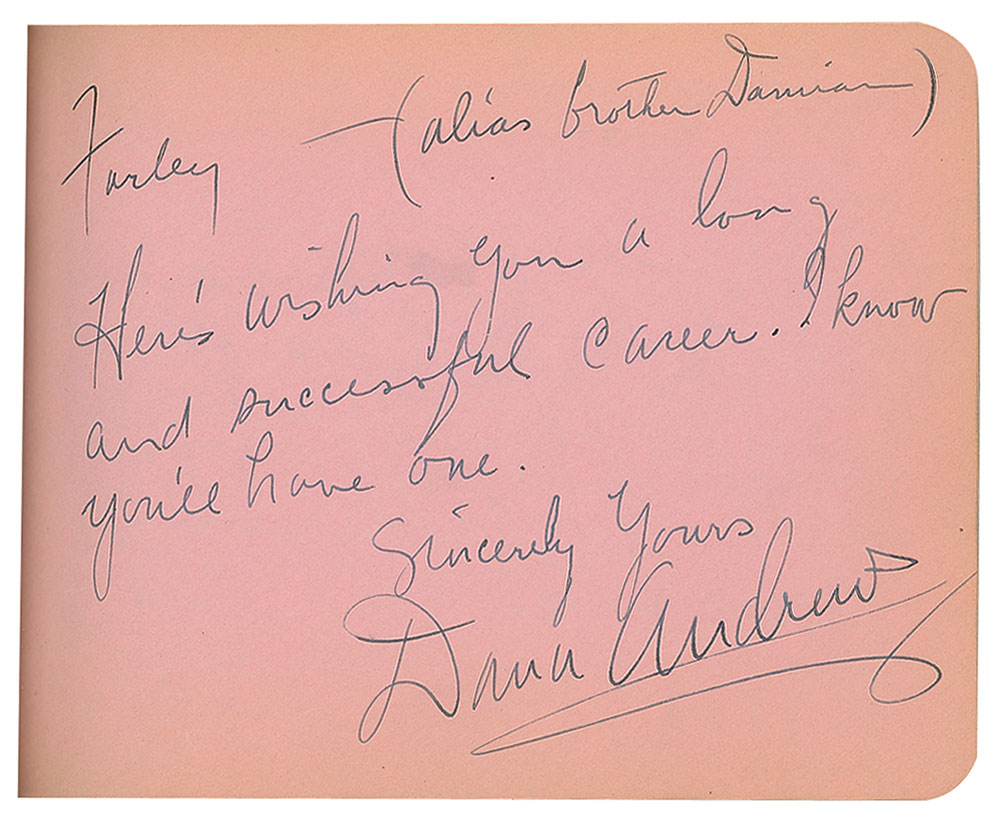 Farley — (alias brother Damian)
Here's wishing you a long
and successful career. I know
you'll have one.
Sincerely Yours
Dana Andrews